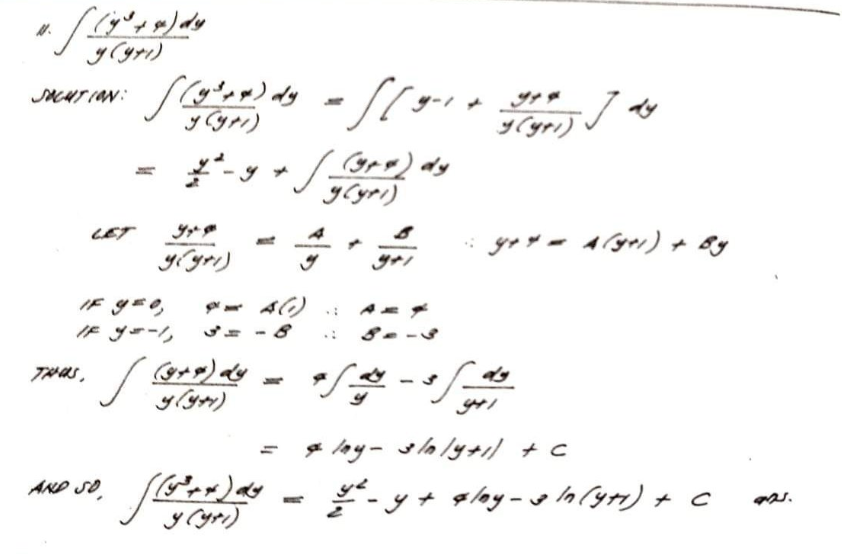 11. ∫ (y³+4)dy / y(y+1)
SOLUTION: ∫ (y³+4)dy / y(y+1) = ∫ [ y-1 + y+4 / y(y+1) ] dy
= y²/2 - y + ∫ (y+4)dy / y(y+1)
LET y+4 / y(y+1) = A/y + B/y+1 ∴ y+4 = A(y+1) + By
IF y=0, 4 = A(1) ∴ A = 4
IF y=-1, 3 = -B ∴ B = -3
THUS, ∫ (y+4)dy / y(y+1) = 4∫ dy/y - 3∫ dy/y+1
= 4 lny - 3ln|y+1| + C
AND SO, ∫ (y³+4)dy / y(y+1) = y²/2 - y + 4lny - 3 ln(y+1) + C ans.